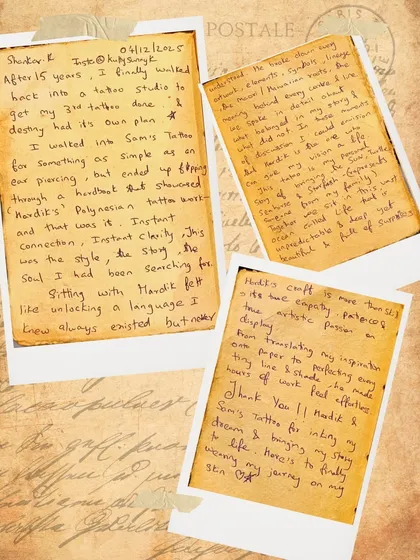 POSTALE
PARIS
Shankar.K Insta@kuttysunnyK
04/12/2025
After 15 years, I finally walked
back into a tattoo studio to
get my 3rd tattoo done. &
destiny had its own plan
I walked into Sam's Tattoo
for something as simple as an
ear piercing, but ended up flipping
through a hardbook that showcased
Hardik's Polynesian tattoo work
and that was it. Instant
connection, Instant clarity, This
was the style, the story, the
soul I had been searching for.
Sitting with Hardik felt
like unlocking a language I
knew always existed but never
understood. He broke down every
artwork, elements, symbols, lineage,
the maori / Hawaiian roots, the
meaning behind every curve & line
we spoke in detail about
what belonged in my story &
what did not. In those moments
of discussion I could
Hardik is the one who
can give my vision a life.
This tattoo is my
story of bringing the Sun,
& Starfish (represents
someone from my family)
Together we sit in this vast
ocean called life that is
unpredictable & deep yet
beautiful & full of surprises
Hardik's craft is more than skill
- its true empathy, patience &
true artistic passion on
display
From translating my inspiration
onto paper to perfecting every
tiny line & shade, he made
hours of work feel effortless.
Thank You !! Hardik &
Sam's Tattoo for inking my
dream & bringing my story
to life. Here's to finally
wearing my journey on my
skin